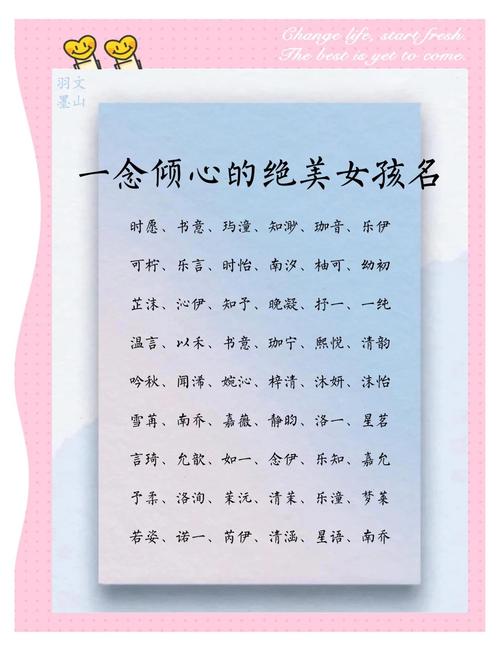 Change life, start fresh.
The best is yet to come.
羽文
墨山
一念倾心的绝美女孩名
时愿、书意、玙潼、知渺、珈音、乐伊
可柠、乐言、时怡、南汐、柚可、幼初
芷沫、沁伊、知予、晚凝、抒一、一纯
温言、以禾、书意、珈宁、熙悦、清韵
吟秋、闻浠、婉沁、梓清、沐妍、沫怡
雪苒、南乔、嘉薇、静昀、洛一、星茗
言琦、允歆、如一、念伊、乐知、嘉允
予柔、洛洵、茉沅、清茉、乐潼、梦莱
若姿、诺一、芮伊、清涵、星语、南乔